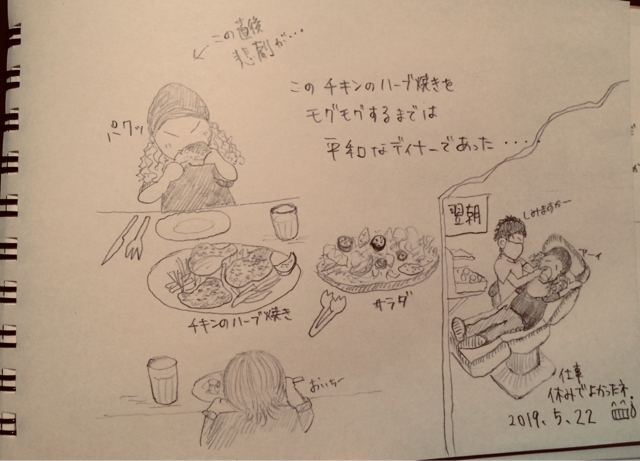 この直後
悲劇が・・・
この チキンのハーブ焼きを
モグモグするまでは
平和なディナーであった・・・・
パクッ
翌朝
しみますかー
アーイ
チキンのハーブ焼き
サラダ
おいちー
仕事
休みでよかったネ
2019.5.22